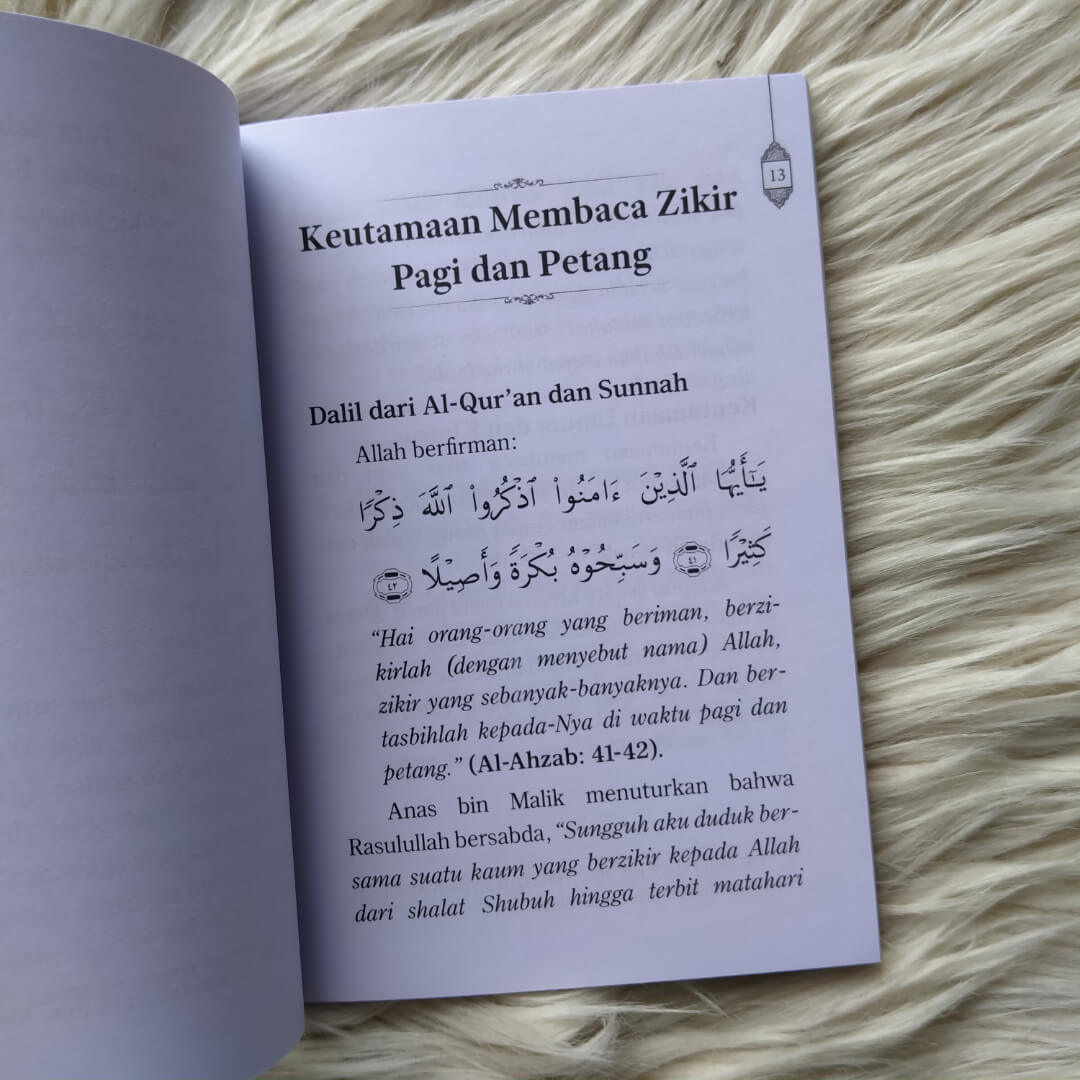 13
Keutamaan Membaca Zikir
Pagi dan Petang
Dalil dari Al-Qur’an dan Sunnah
Allah berfirman:
يَـٰٓأَيُّهَا ٱلَّذِيْنَ ءَامَنُوا۟ ٱذْكُرُوا۟ ٱللَّهَ ذِكْرًا
كَثِيْرًا ٤١ وَسَبِّحُوْهُ بُكْرَةً وَأَصِيْلًا ٤٢
“Hai orang-orang yang beriman, berzi-
kirlah (dengan menyebut nama) Allah,
zikir yang sebanyak-banyaknya. Dan ber-
tasbihlah kepada-Nya di waktu pagi dan
petang.” (Al-Ahzab: 41-42).
Anas bin Malik menuturkan bahwa
Rasulullah bersabda, “Sungguh aku duduk ber-
sama suatu kaum yang berzikir kepada Allah
dari shalat Shubuh hingga terbit matahari